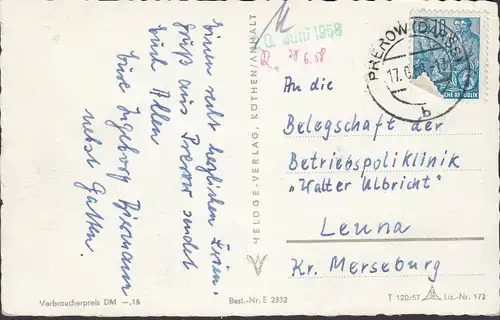 Einen recht herzlichen Ferien-
gruß aus Prerow sendet
Euch Allen
Eure Ingeborg
nebst Gatten.
HELDGE-VERLAG, KÖTHEN/ANHALT
0. Juni 1958
6.58
PREROW (DARSS)
17.
b
10
CHE REPUBLIK
An die
Belegschaft der
Betriebspoliklinik
„Walter Ulbricht"
Leuna
Kr. Merseburg
Verbraucherpreis DM —.15
Best.-Nr. E 2832
T 120/57
Liz.-Nr. 172